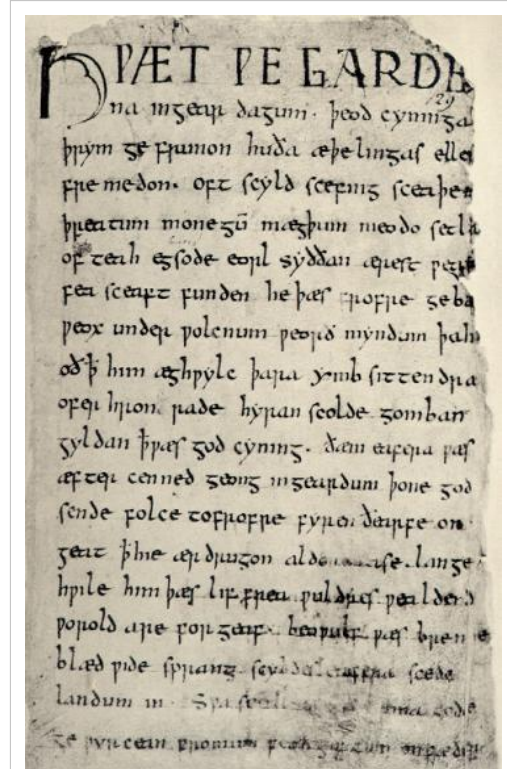 HǷÆT ǷE GARDE
na ingear dagum. þeod cyninga
þrym ge frunon huða æþelingas elle
fre medon. oft scyld scefing sceaþe
þreatum monegū mægþum meodo setla
of teah egsode eorl syððan ærest ƿear
fea sceaft funden he þæs frofre geba
ƿeox under ƿolcnum ƿeorð myndum þah
oðꝥ him æghƿylc þara ymb sittendra
ofer hron rade hyran scolde gomban
gyldan ꝥƿæs god cyning. ðæm eafera ƿæs
æfter cenned geong ingeardum þone god
sende folce tofrofre fyren ðearfe on
geat ꝥhie ær drugon aldor ase. lange
hƿile him þæs lif frea ƿuldres ƿealdend
ƿorold are for geaf. beoƿulf ƿæs breme
blæd ƿide sprang scyldes eafera scede
landum in. Sƿa guma gode
ge ƿyrcean fromum feoh giftum